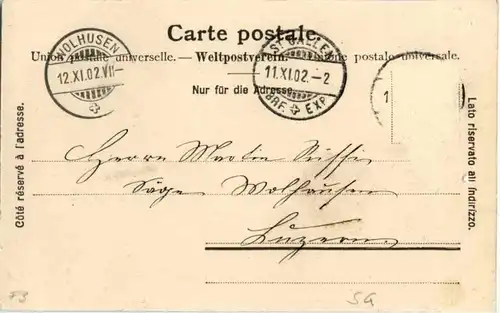 Carte postale.
Union postale universelle. — Weltpostverein. — Unione postale universale.
Nur für die Adresse.
WOLHUSEN
12.XI.02.VII
ST. GALLEN
11.XI.02.-2
BRF. EXP.
1
Côté réservé à l'adresse.
Lato riservato all'indirizzo.
Herrn Martin
Säge Wolhusen
Luzern
SG